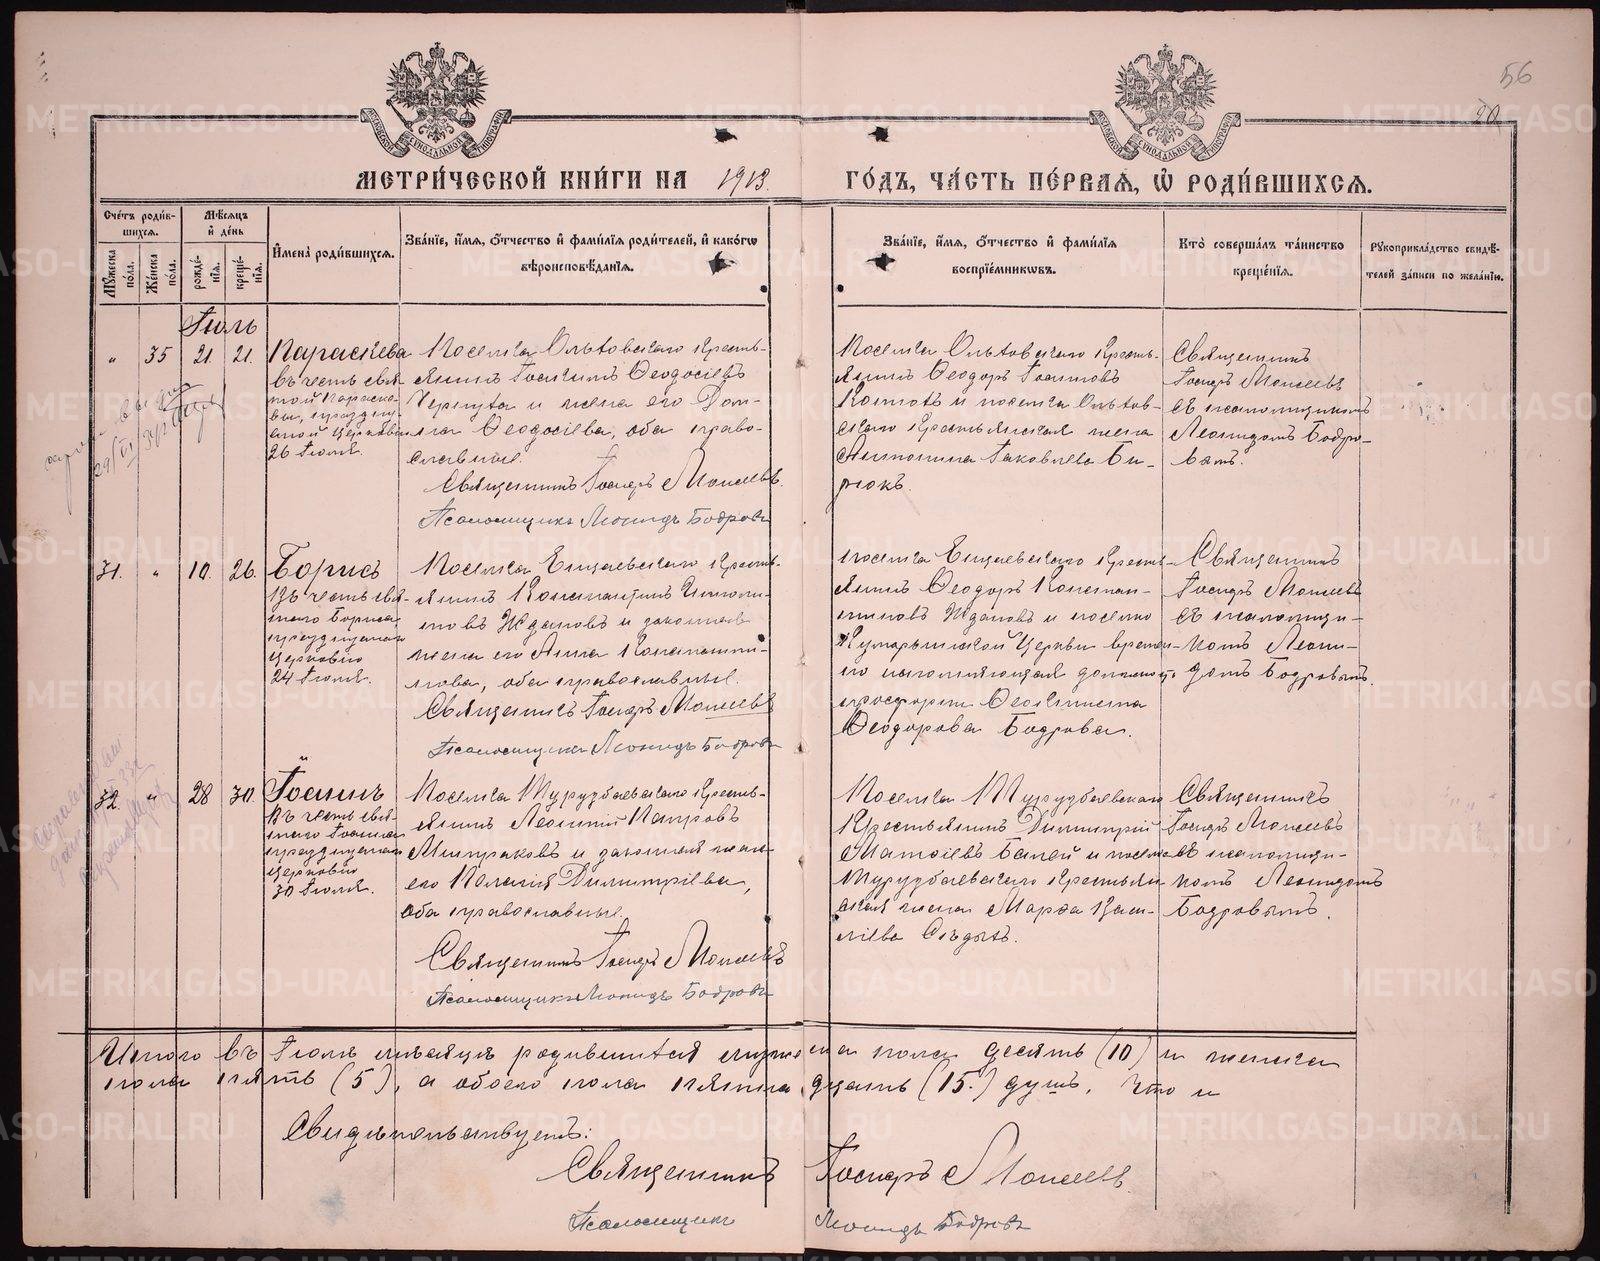 56
МЕТРИ́ЧЕСКОЙ КНИ́ГИ НА 1913 ГО́ДЪ, ЧА́СТЬ ПЕ́РВАЯ, Ѡ РОДИ́ВШИХСЯ.
Сче́тъ роди́вшихся.
Мѣ́сяцъ и день
Му́жеска по́ла.
Же́нска по́ла.
рожде́нія.
креще́нія.
Имена̀ роди́вшихся.
Зва́ніе, и́мя, о́тчество и фами́лія роди́телей, и како́гѡ вѣроисповѣ́данія.
Зва́ніе, и́мя, о́тчество и фами́лія воспріе́мникѡвъ.
Кто̀ соверша́лъ та́инство креще́нія.
Рукоприкла́дство свидѣ́телей за́писи по жела́нію.
Іюль
" 35 21 21.
Параскева
въ честь свя-
той Параске-
вы, празднуе-
мой Церковью
26 Іюля.
Поселка Ольговскаго Кресть-
янинъ Іоакимъ Ѳеодосіевъ
и жена его Дом-
на Ѳеодосіева, оба право-
славные.
Священникъ Іосифъ Моисеевъ.
Псаломщикъ Леонидъ Бодровъ
Поселка Ольговскаго Кресть-
янинъ Ѳеодоръ
и поселка Ольгов-
скаго Крестьянская жена
Антонина Іаковлева Би-
рюкъ.
Священникъ
Іосифъ Моисеевъ
съ псаломщикомъ
Леонидомъ Бодро-
вымъ.
31. " 10. 26.
Борисъ
въ честь свя-
таго Бориса,
празднуемаго
Церковію
24 Іюля.
Поселка Кресть-
янинъ Константинъ
Ждановъ и законная
жена его Анна Константи-
нова, оба православные.
Священникъ Іосифъ Моисеевъ
Псаломщикъ Леонидъ Бодровъ
поселка Кресть-
янинъ Ѳеодоръ Констан-
тиновъ Ждановъ и поселка
Церкви времен-
но исполняющая должность
просфорни Ѳеоктиста
Ѳеодорова Бодрова.
Священникъ
Іосифъ Моисеевъ
съ псаломщи-
комъ Леони-
домъ Бодровымъ.
32. " 28 30.
Іоаннъ
Въ честь свя-
таго Іоанна
празднуемаго
Церковію
30 Іюля.
Поселка Турудбаевскаго Кресть-
янинъ Леонтій Петровъ
Митраковъ и законная жена
его Пелагія Димитріева,
оба православные.
Священникъ Іосифъ Моисеевъ
Псаломщикъ Леонидъ Бодровъ
Поселка Турудбаевскаго
Крестьянинъ Димитрій
и поселка
Турудбаевскаго Крестьян-
ская жена Марѳа Васи-
ліева Сѣдыхъ.
Священникъ
Іосифъ Моисеевъ
съ псаломщи-
комъ Леонидомъ
Бодровымъ.
Итого въ Іюлѣ мѣсяцѣ родившихся мужеска пола десять (10) и женска
пола пять (5), а обоего пола пятнадцать (15.) душъ. Что и
Свидѣтельствуетъ:
Священникъ Іосифъ Моисеевъ.
Псаломщикъ Леонидъ Бодровъ
METRIKI.GASO-URAL.RU